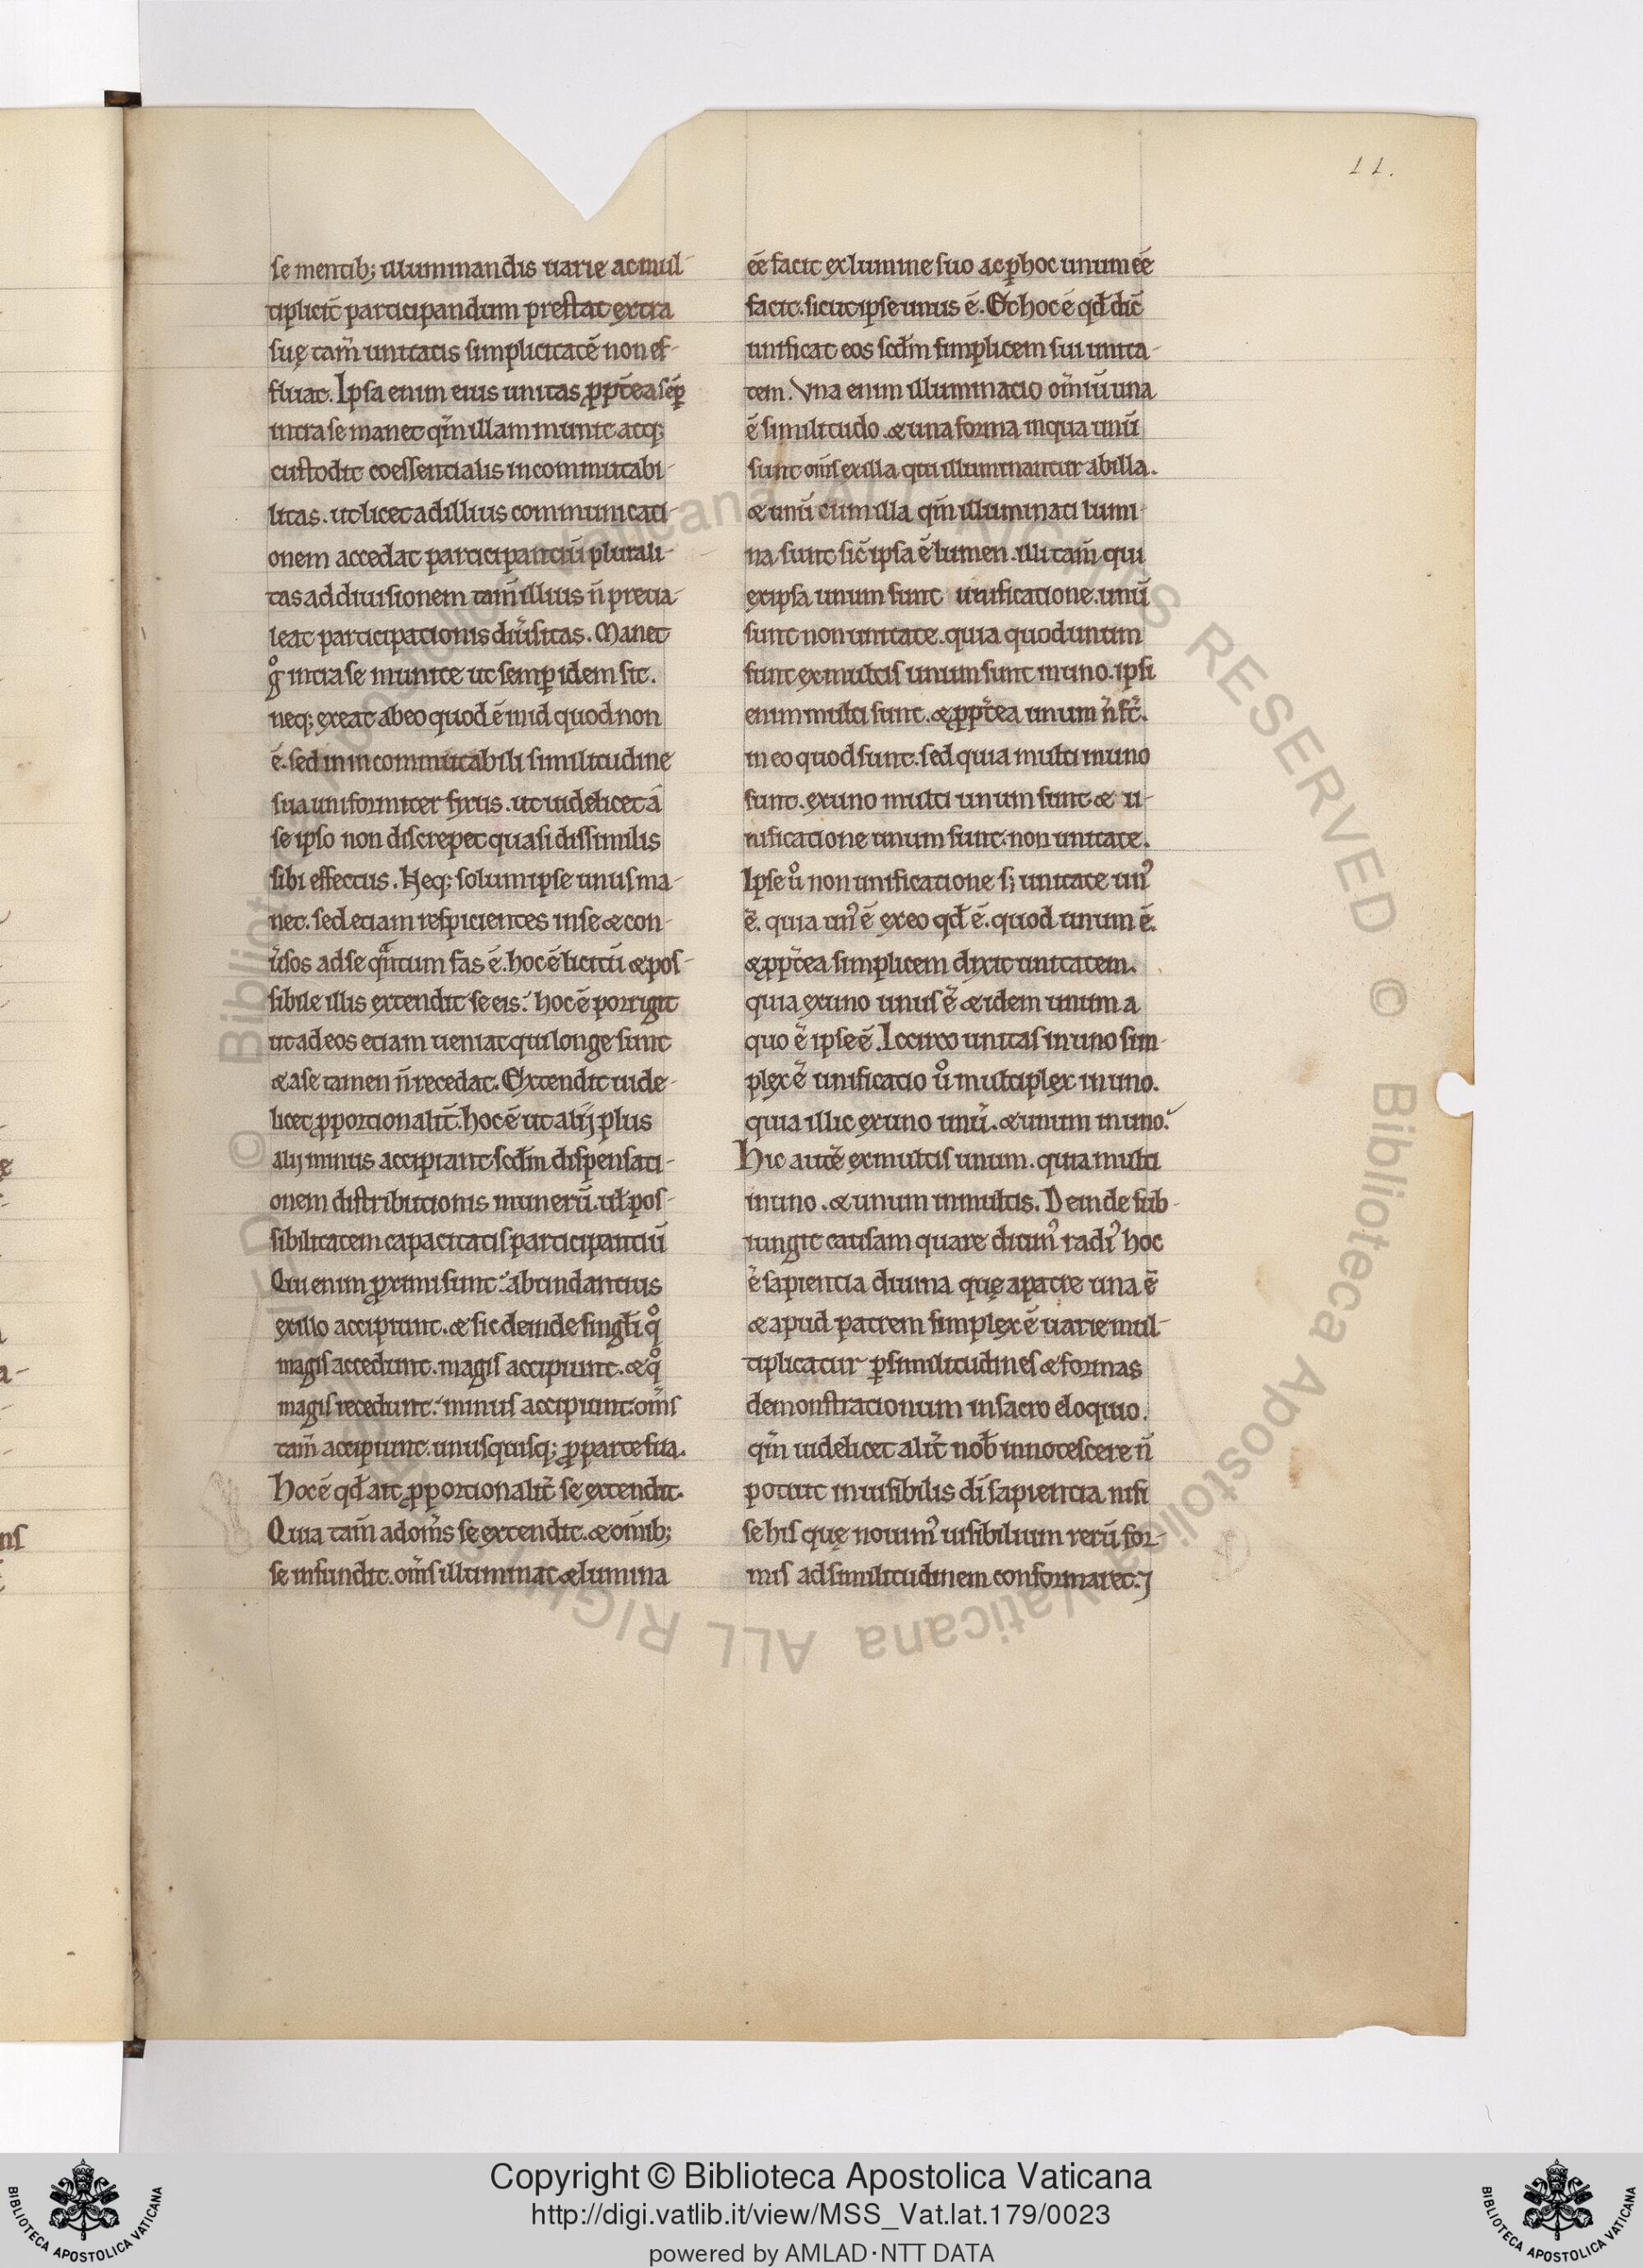 11.
se mentib; illuminandis uarie ac mul-
tiplicit̄ participandum prestat extra
suę tam̄ unitatis simplicitatē non ef-
fluat. Ipsa enim eius unitas ꝓpt̄ea sēꝑ
intra se manet qm̄ illam munit atq;
custodit coessentialis incommutabi-
litas. ut licet ad illius communicati-
onem accedat participantiū plurali-
tas ad diuisionem tam̄ illius n̄ preua-
leat participationis diu̾sitas. Manet
gͦ intra se munite ut semꝑ idem sit.
neq; exeat ab eo quod ē in id quod non
ē. sed in incommutabili similitudine
sua uniformiter fixus. ut uidelicet á
se ipso non discrepet quasi dissimilis
sibi effectus. Neq; solum ipse unus ma-
net. sed etiam respicientes in se & con-
u̾sos ad se qͣntum fas ē. hoc ē licitū & pos-
sibile illis extendit se eis. hoc ē porrigit
ut ad eos etiam ueniat qui longe sunt
& a se tamen n̄ recedat. Extendit uide-
licet ꝓportionalit̄. hoc ē ut alij plus
alij minus accipiant scd̄m dispensati-
onem distributionis munerū. ul̄ pos-
sibilitatem capacitatis participantiū
Qui enim ꝓximi sunt: abundantius
ex illo accipiunt. & sic deinde singl̄i qͦ
magis accedunt. magis accipiunt. & qͦ
magis recedunt: minus accipiunt: om̄s
tam̄ accipiunt. unusquisq; ꝓ parte sua.
Hoc ē qd̄ ait ꝓportionalit̄ se extendit.
Quia tam̄ ad om̄s se extendit. & om̄ib;
se infundit. om̄s illuminat & lumina
ēē facit ex lumine suo ac ꝑ hoc unum ēē
facit. sicut ipse unus ē. Et hoc ē qd̄ dic̄
unificat eos scd̄m simplicem sui unita-
tem. Vna enim illuminatio om̄iū una
ē similitudo. & una forma in qua unū
sunt om̄s ex illa qui illuminantur ab illa.
& unū cum illa qm̄ illuminati lumi-
na sunt sic̄ ipsa ē lumen. illi tam̄ qui
ex ipsa unum sunt unificatione. unū
sunt non unitate. quia quod unum
sunt ex multis unum sunt in uno. ipsi
enim multi sunt. & ꝓpt̄ea unum n̄ st̄.
in eo quod sunt. sed quia multi in uno
sunt. ex uno multi unum sunt & u-
nificatione unum sunt: non unitate.
Ipse uͦ non unificatione s; unitate un᾽
ē. quia un᾽ ē ex eo qd̄ ē. quod unum ē.
& ꝓpt̄ea simplicem dixit unitatem.
quia ex uno unus ē & idem unum a
quo ē ipse ē. Iccirco unitas in uno sim-
plex ē unificatio uͦ multiplex in uno.
quia illic ex uno unū. & unum in uno.
Hic autē ex multis unum. quia multi
in uno. & unum in multis. Deinde sub-
iungit causam quare diuin᾽ radi᾽ hoc
ē sapientia diuina quę a patre una ē
& apud patrem simplex ē uarie mul-
tiplicatur ꝑ similitudines & formas
demonstrationum in sacro eloquio.
qm̄ uidelicet alit̄ nob̄ innotescere n̄
potuit inuisibilis dī sapientia nisi
se his quę nouim᾽ uisibilium rerū for-
mis ad similitudinem conformaret.⁊
Copyright © Biblioteca Apostolica Vaticana
http://digi.vatlib.it/view/MSS_Vat.lat.179/0023
powered by AMLAD·NTT DATA
BIBLIOTECA APOSTOLICA VATICANA
BIBLIOTECA APOSTOLICA VATICANA